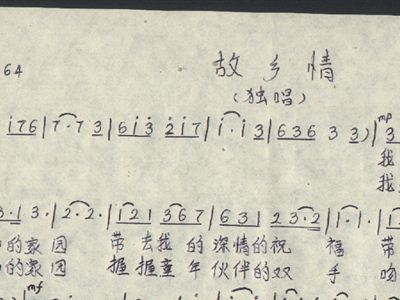 64
故乡情
（独唱）
i76 | 7·7 3 | 6i3 2i7 | i·i 3 | 636 3 3) | mp 3
我
我
3·1 3· | 2·2· | 121 367 | 631 23·2 | 1·1· |
的家园 带去我的深情的祝福 带
的家园 握握童年伙伴的双手 吻
mf